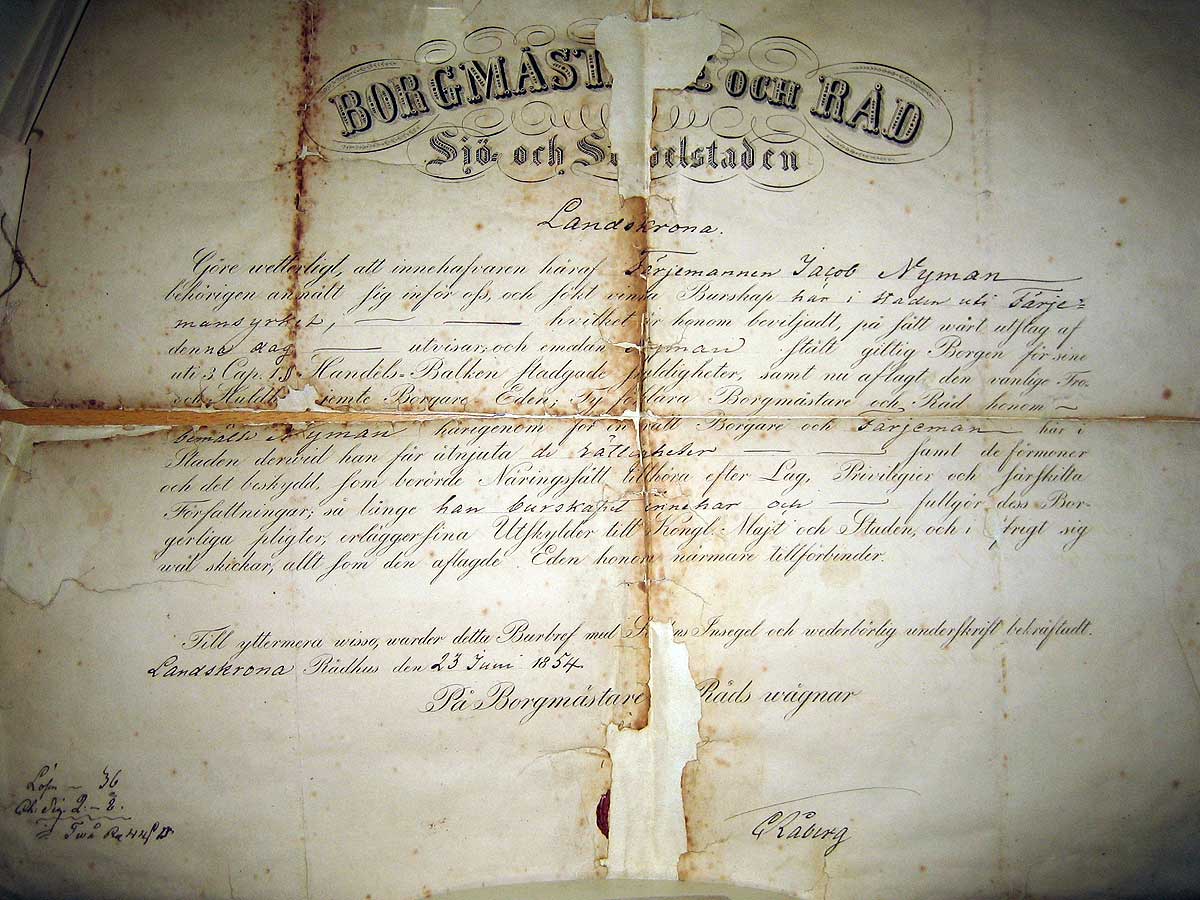 BORGMÄST OCH RÅD
Sjö- och S pelstaden
Landskrona.
Göre wetterligt, att innehafvaren häraf Färjemannen Jacob Nyman
behörigen anmält sig inför oss, och sökt vinna Burskap här i staden uti Färje-
mansyrket, hvilket är honom beviljadt, på sätt wårt utslag af
denne dag utvisar; och emedan Nyman stält giltig Borgen för sine
uti 3 Cap. 1 § Handels-Balken stadgade skyldigheter, samt nu aflagt den vanlige Tro-
och Huld Borgare Eden; Ty förklara Borgmästare och Råd honom
bemälte Nyman härigenom för en rätt Borgare och Färjeman här i
Staden derwid han får åtnjuta de rättigheter samt de förmoner
och det beskydd, som berörde Näringssätt tillhöra efter Lag, Privilegier och särskilta
Författningar; så länge han burskapet innehar och fullgör dess Bor-
gerliga pligter, erlägger sina Utskylder till Kongl. Majt och Staden, och i öfregt sig
wäl skickar, allt som den aflagde Eden honom närmare tillförbinder.
Till yttermera wisso, warder detta Burbref med Stadens Insegel och wederbörlig underskrift bekräftadt.
Landskrona Rådhus den 23 Juni 1854.
På Borgmästare Råds wägnar
Lösn 36
2 8.
Två
CRåberg